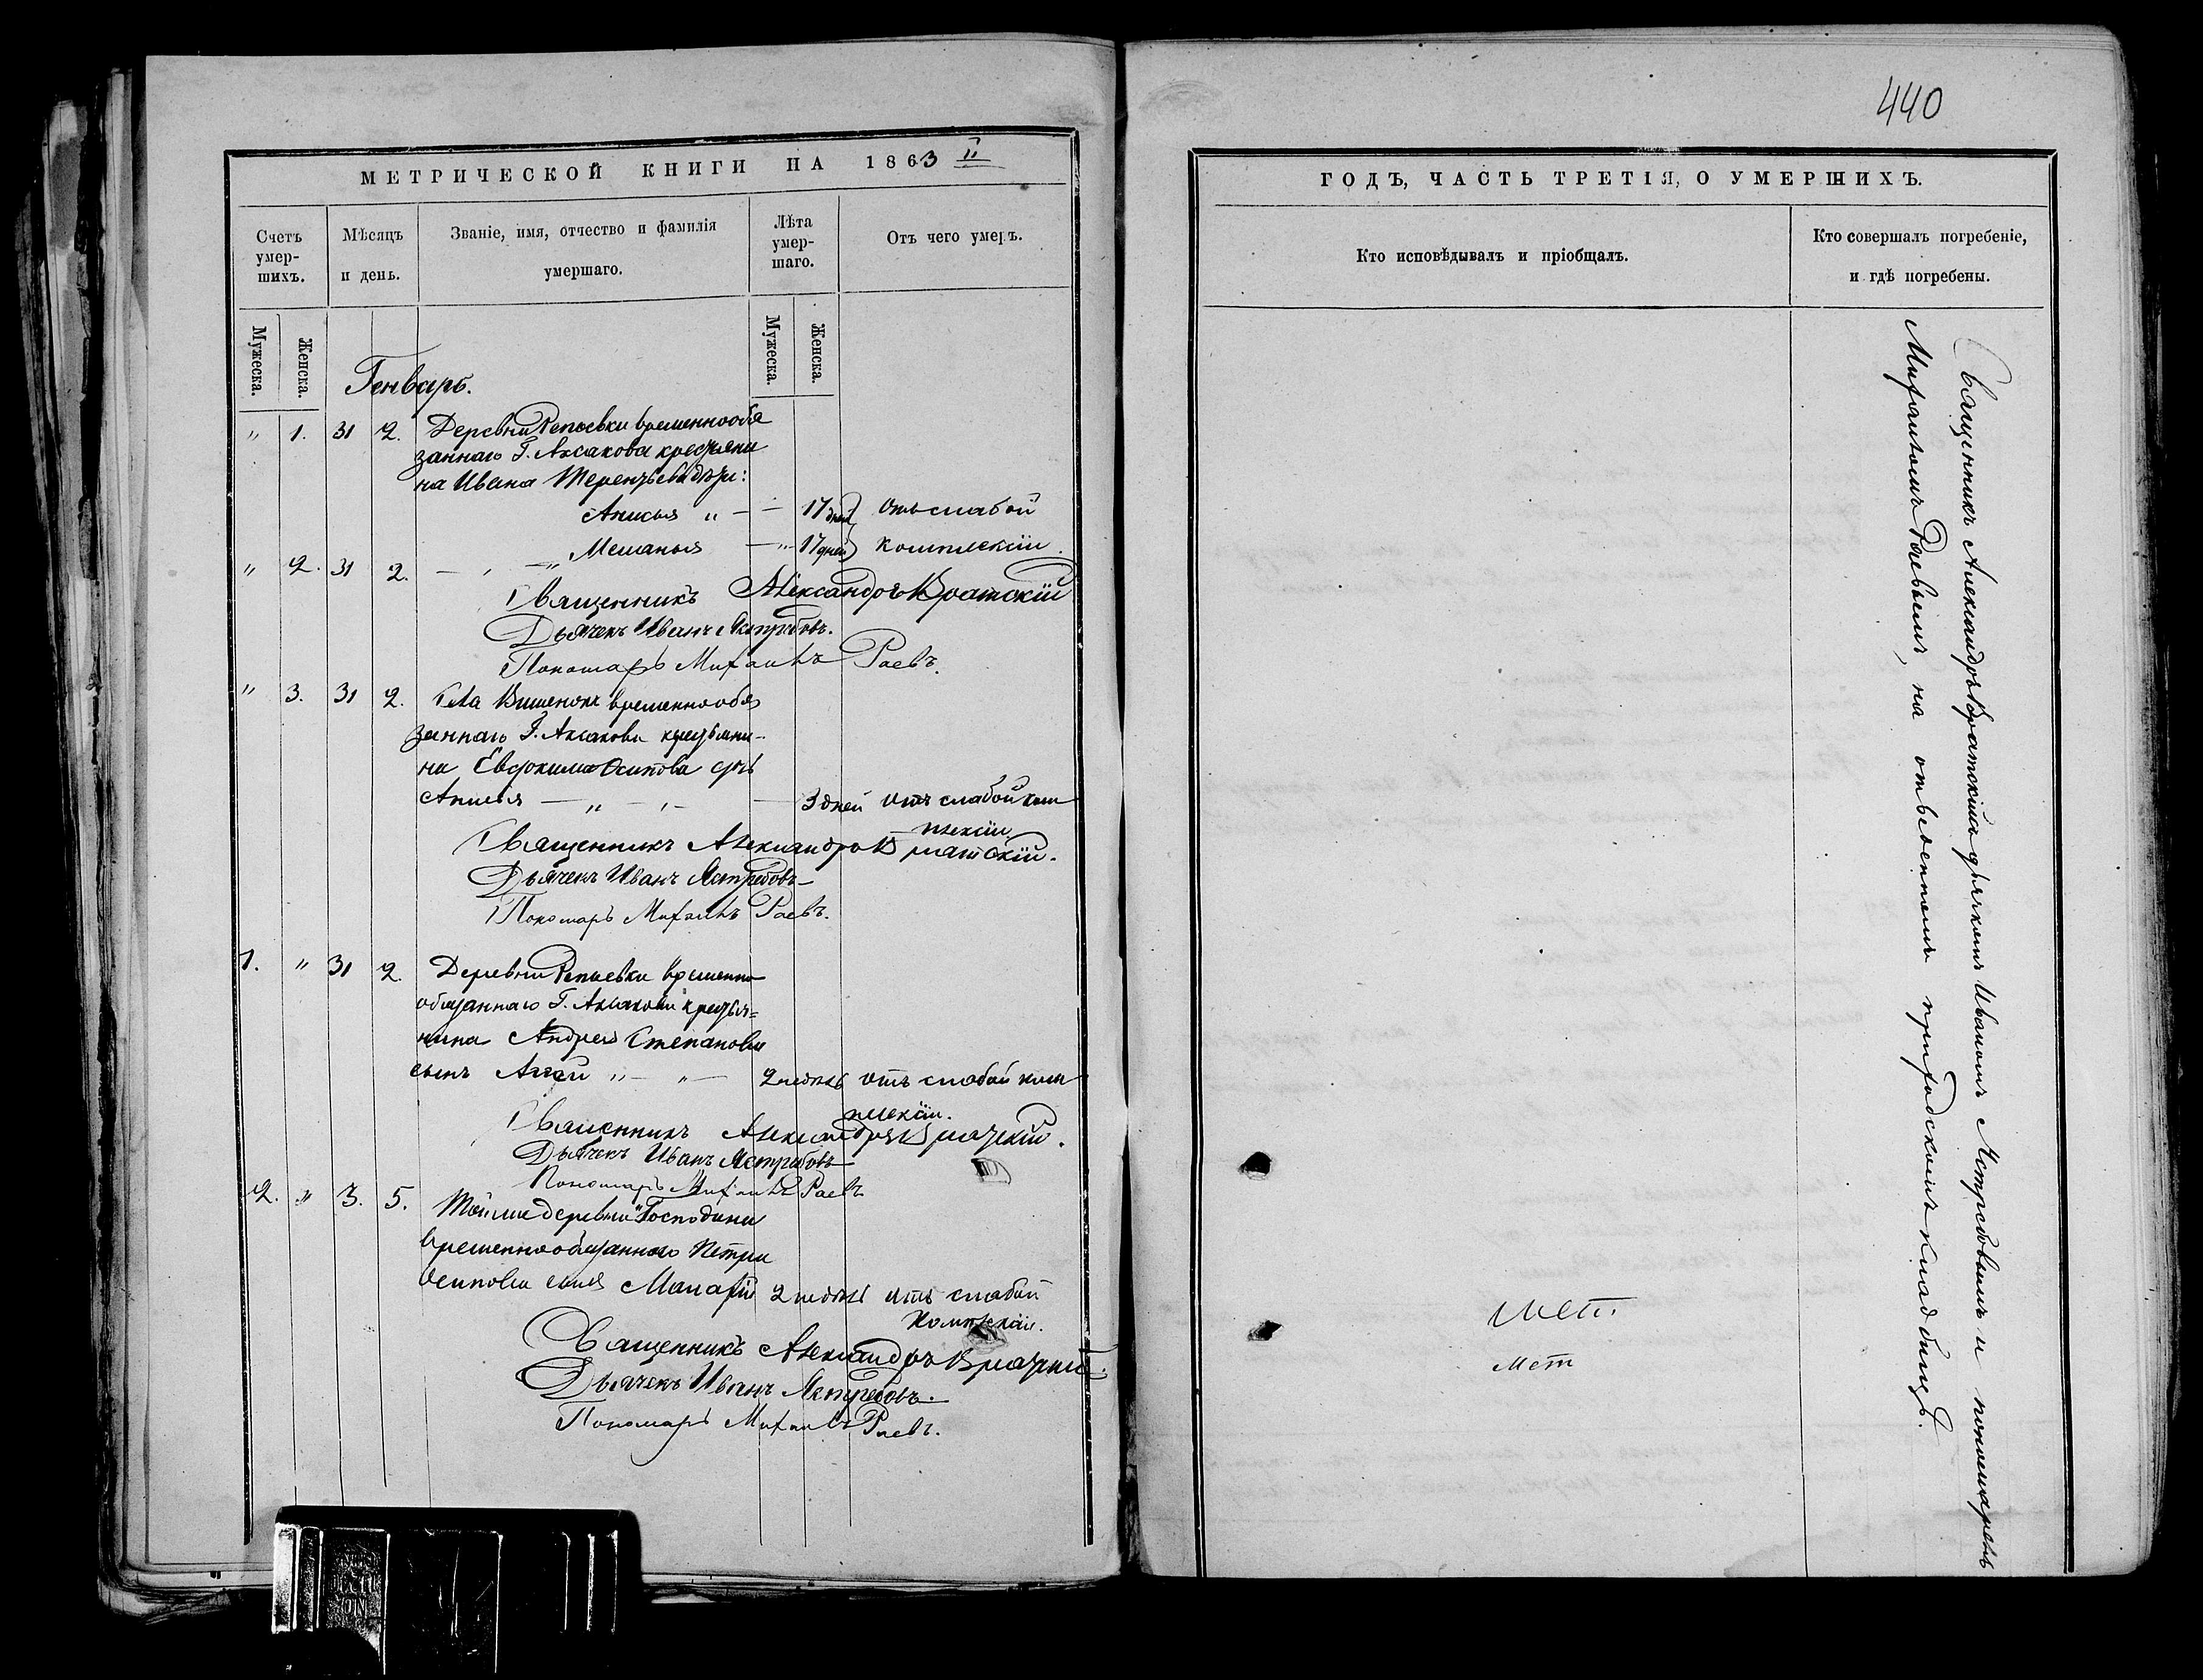 МЕТРИЧЕСКОЙ КНИГИ НА 1863
Счетъ умершихъ.
Мѣсяцъ и день.
Званіе, имя, отчество и фамилія умершаго.
Лѣта умершаго.
Отъ чего умеръ.
Мужеска.
Женска.
Мужеска.
Женска.
Генварь.
" 1. 31 2. Деревни Репьевки временнообя
заннаго Г. Аксакова крестьяни
на Ивана Терентьева дѣти:
Анисья " — — 17 дней отъ слабой
Меланья — " — 17 дней комплекціи.
" 2. 31 2.
Священникъ Александръ Братскій
Дьячекъ Иванъ Ястребовъ.
Пономарь Михаилъ Раевъ.
" 3. 31 2. Села Вишенокъ временнообя
заннаго Г. Аксакова крестьяни-
на Евдокима Осипова дочь
Анисія — " — 3 дней отъ слабой ком
плекціи.
Священникъ Александръ Братскій.
Дьячекъ Иванъ Ястребовъ
Пономарь Михаилъ Раевъ.
1. " 31 2. Деревни Репьевки временно
обязаннаго Г. Аксакова крестья=
нина Андрея Степанова
сынъ Аггей " — " — 2 недѣль отъ слабой ком
плекціи.
Священникъ Александръ Братскій.
Дьячекъ Иванъ Ястребовъ
Пономарь Михаилъ Раевъ
2. " 3. 5. Той же деревни Господина
временнообязаннаго Петра
Осипова сынъ Малафій 2 недѣль отъ слабой
комплекціи.
Священникъ Александръ Братскій.
Дьячекъ Иванъ Ястребовъ.
Пономарь Михаилъ Раевъ.
440
ГОДЪ, ЧАСТЬ ТРЕТІЯ, О УМЕРШИХЪ.
Кто исповѣдывалъ и пріобщалъ.
Кто совершалъ погребеніе,
и гдѣ погребены.
Священникъ Александръ Братскій съ дьячкомъ Иваномъ Ястребовымъ и пономаремъ
Михаиломъ Раевымъ, на отведенномъ приходскомъ кладбищѣ.